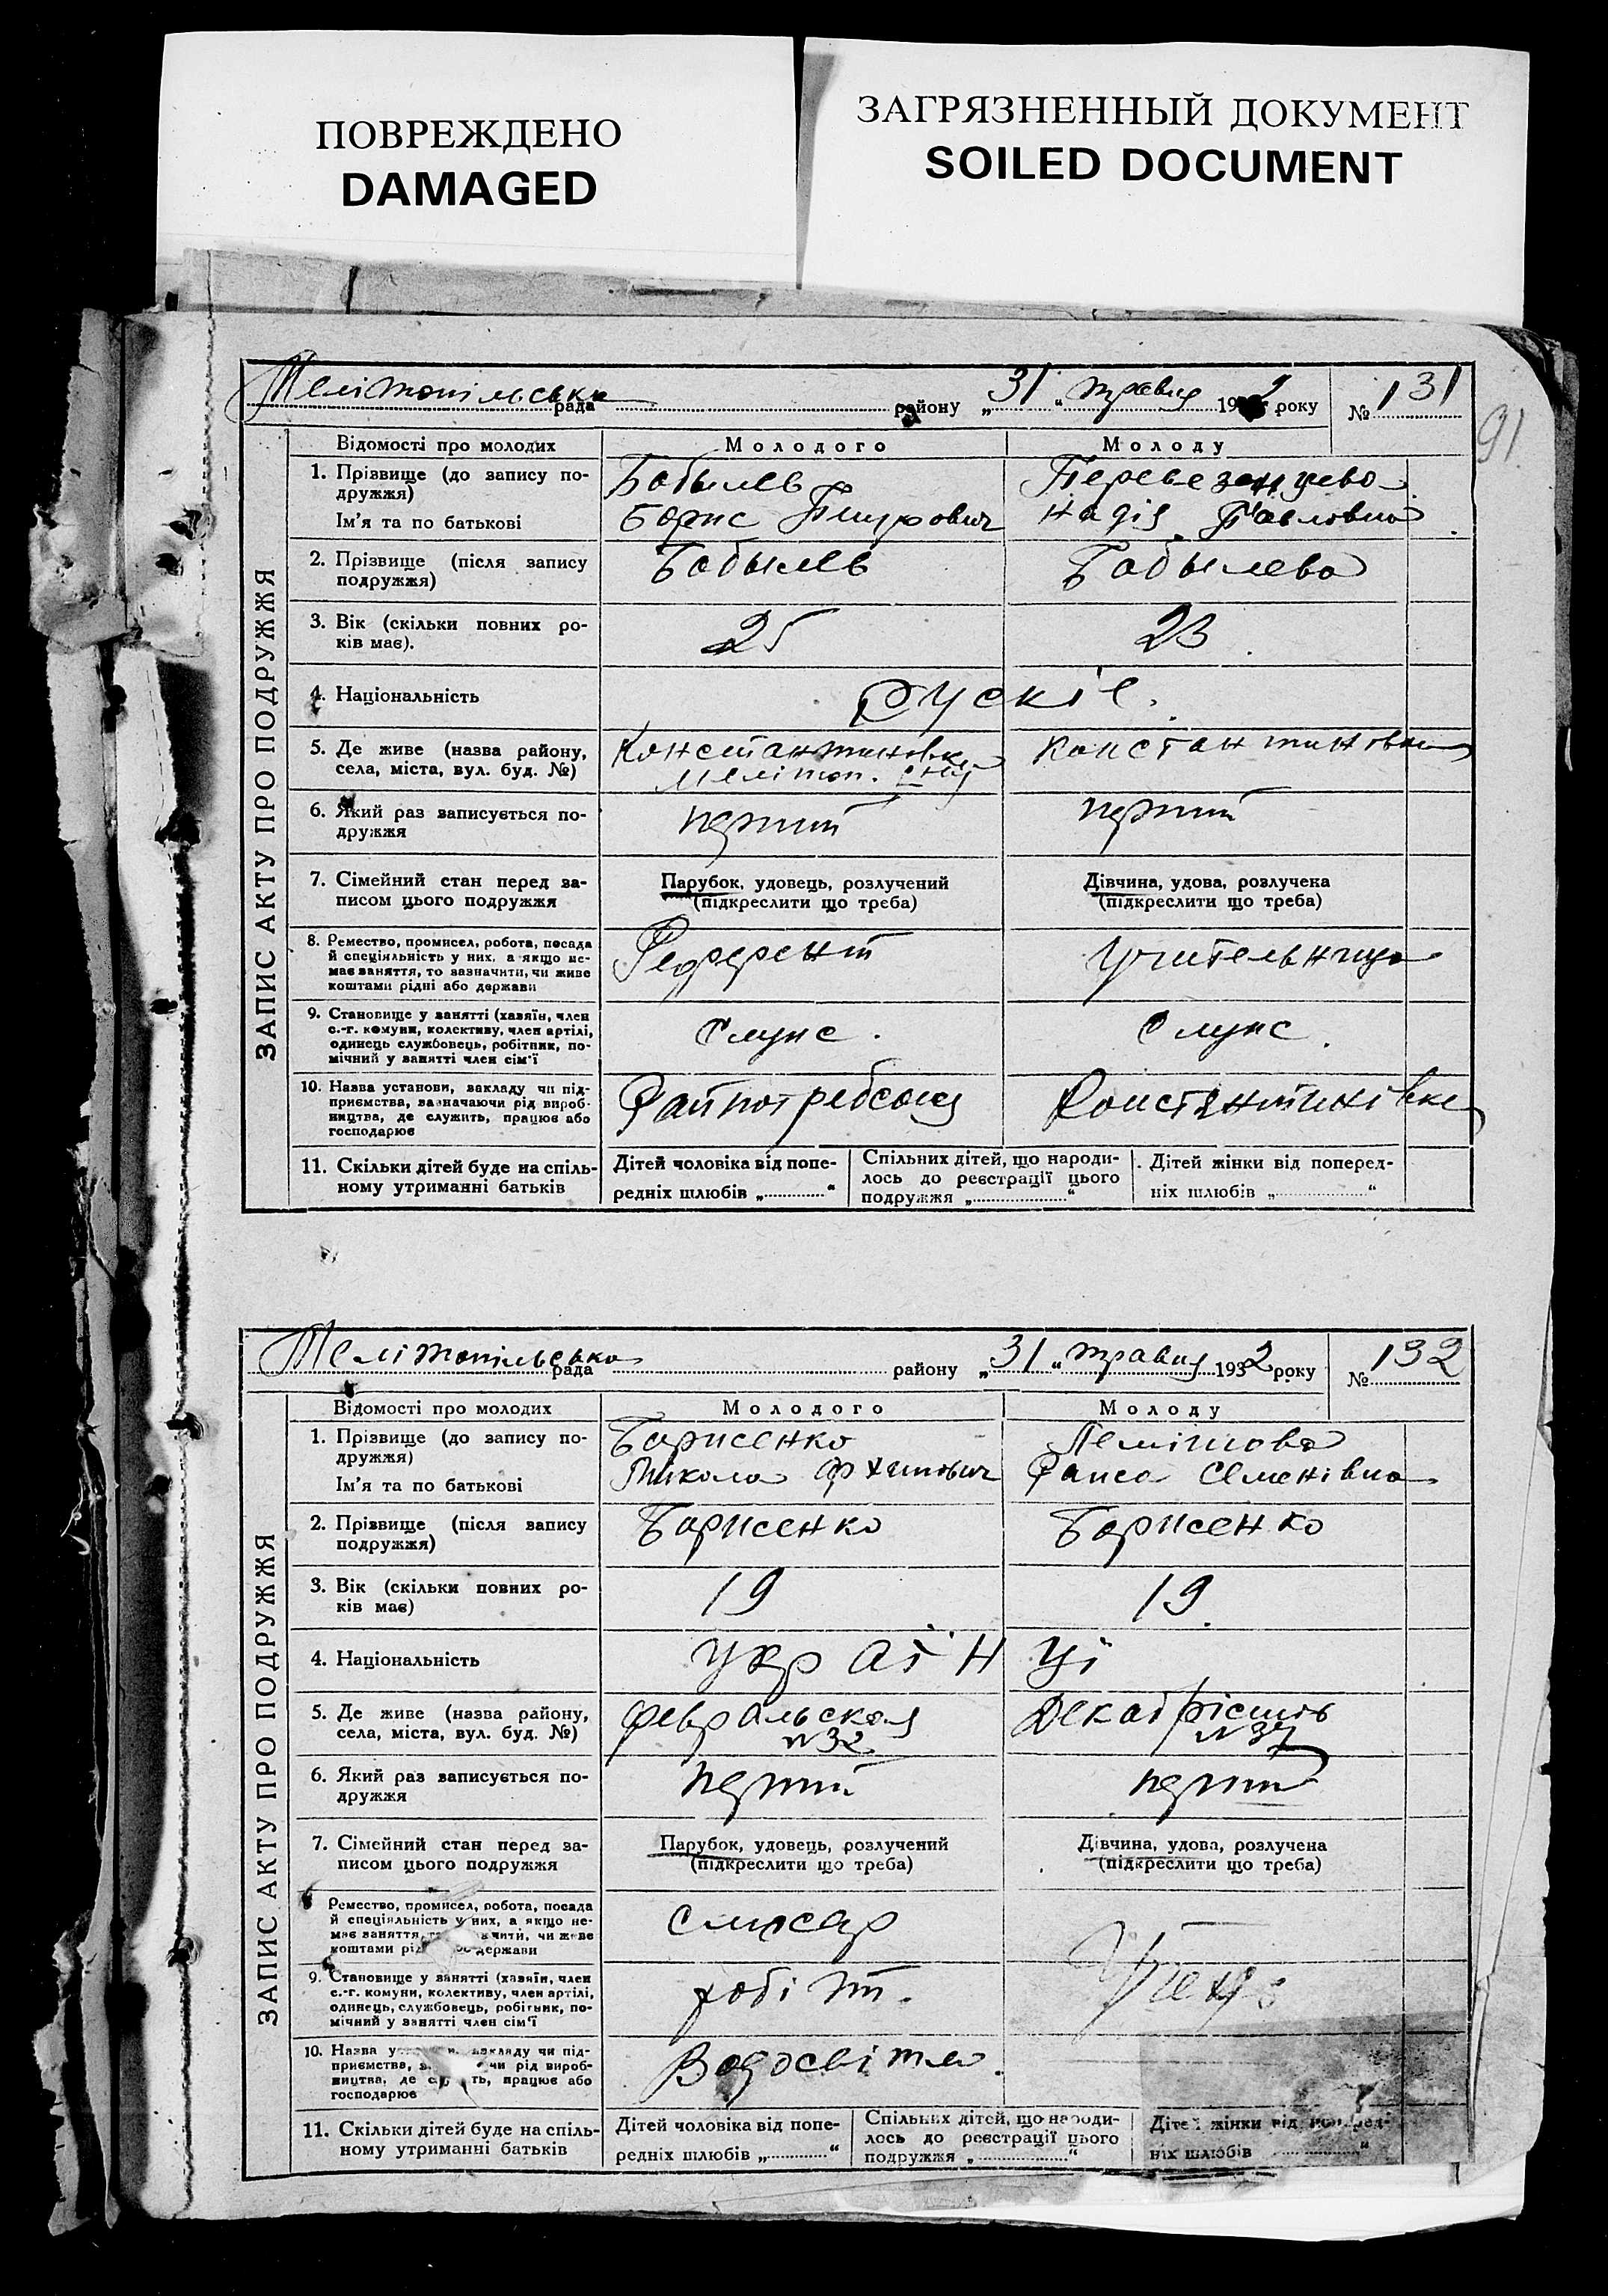 ПОВРЕЖДЕНО
DAMAGED
ЗАГРЯЗНЕННЫЙ ДОКУМЕНТ
SOILED DOCUMENT
91
ЗАПИС АКТУ ПРО ПОДРУЖЖЯ
Мелітопільська рада району „31“ травня 1932 року № 131
Відомості про молодих Молодого Молоду
1. Прізвище (до запису по-
дружжя)
Бобылев
Перевезенцева
Ім'я та по батькові
Борис
Надія Павловна
2. Прізвище (після запису
подружжя)
Бобылев
Бобылева
3. Вік (скільки повних ро-
ків має).
25
23
4. Національність
рускіе.
5. Де живе (назва району,
села, міста, вул. буд. №)
Константиновка
Меліт­оп.
Константиновка
6. Який раз записується по-
дружжя
перший
перший
7. Сімейний стан перед за-
писом цього подружжя
Парубок, удовець, розлучений
(підкреслити що треба)
Дівчина, удова, розлучена
(підкреслити що треба)
8. Ремество, промисел, робота, посада
й спеціяльність у них, а якщо не-
має заняття, то зазначити, чи живе
коштами рідні або держави
Референт
Учительниця
9. Становище у занятті (хазяїн, член
с.-г. комуни, колективу, член артілі,
одинець службовець, робітник, по-
мічний у занятті член сім'ї
служ.
служ.
10. Назва установи, закладу чи під-
приємства, зазначаючи рід вироб-
ництва, де служить, працює або
господарює
Райпотребсоюз
Константинівка
11. Скільки дітей буде на спіль-
ному утриманні батьків
Дітей чоловіка від попе-
редніх шлюбів „ “
Спільних дітей, що народи-
лось до реєстрації цього
подружжя „ “
Дітей жінки від поперед-
ніх шлюбів „ “
ЗАПИС АКТУ ПРО ПОДРУЖЖЯ
Мелітопільська рада району „31“ травня 1932 року № 132
Відомості про молодих Молодого Молоду
1. Прізвище (до запису по-
дружжя)
Борисенко
Ім'я та по батькові
Микола
Раиса Семенівна
2. Прізвище (після запису
подружжя)
Борисенко
Борисенко
3. Вік (скільки повних ро-
ків має)
19
19
4. Національність
українці
5. Де живе (назва району,
села, міста, вул. буд. №)
Февральская
№32
Декабрістів
№37
6. Який раз записується по-
дружжя
перший
перший
7. Сімейний стан перед за-
писом цього подружжя
Парубок, удовець, розлучений
(підкреслити що треба)
Дівчина, удова, розлучена
(підкреслити що треба)
Ремество, промисел, робота, посада
й спеціяльність у них, а якщо не-
має заняття, чи живе
коштами держави
слюсар
9. Становище у занятті (хазяїн, член
с.-г. комуни, колективу, член артілі,
одинець, службовець, робітник, по-
мічний у занятті член сім'ї
робітн.
10. Назва закладу чи під-
приємства, рід вироб-
ництва, де працює або
господарює
11. Скільки дітей буде на спіль-
ному утриманні батьків
Дітей чоловіка від попе-
редніх шлюбів „ “
Спільних дітей, що народи-
лось до реєстрації цього
подружжя „ “
Дітей жінки від поперед-
ніх шлюбів “